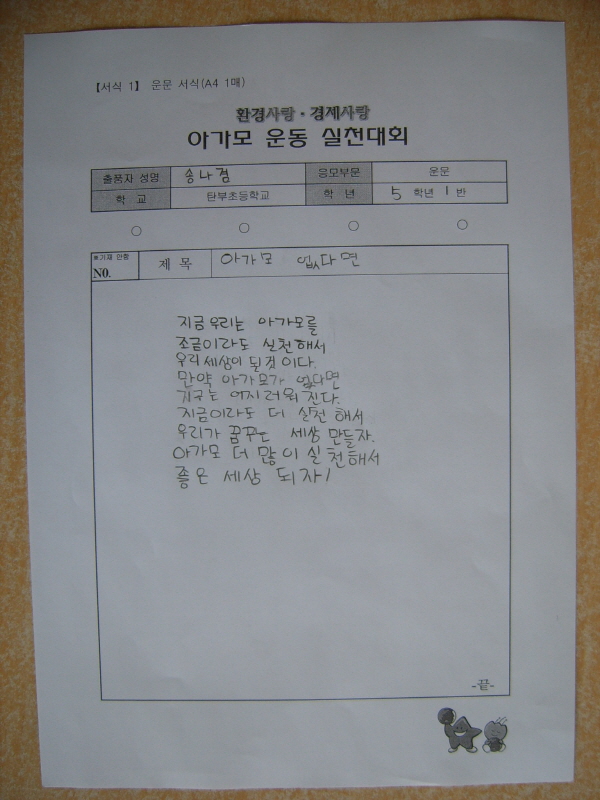 【서식 1】 운문 서식(A4 1매)
환경사랑·경제사랑
아가모 운동 실천대회
출품자 성명 송나겸 응모부문 운문
학 교 탄부초등학교 학 년 5 학년 1 반
○ ○ ○ ○
※기재 안함
NO.
제 목 아가모 없다면
지금 우리는 아가모를
조금이라도 실천해서
우리 세상이 될 것 이다.
만약 아가모가 없다면
지구는 어지러워 진다.
지금이라도 더 실천 해서
우리가 꿈꾸는 세상 만들자.
아가모 더 많이 실천해서
좋은 세상 되자!
-끝-